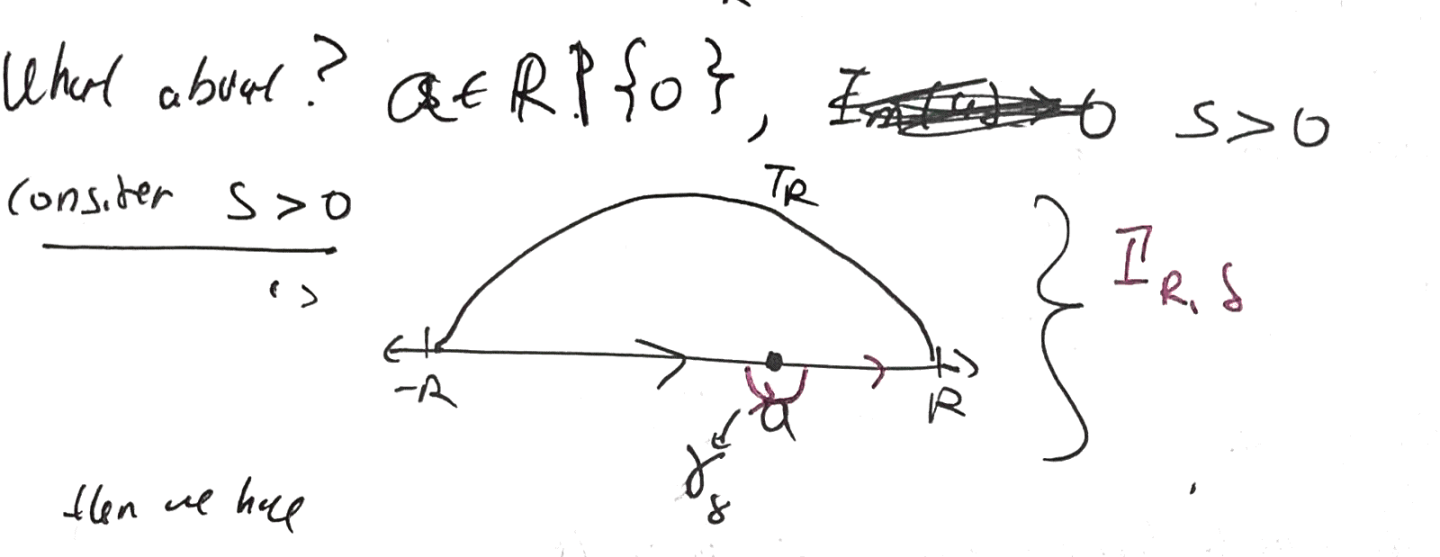 What about? a ∈ ℝ \ {0}, s > 0
Consider s > 0
T_R
Γ_{R, δ}
-R
a
R
γ_δ
then we have